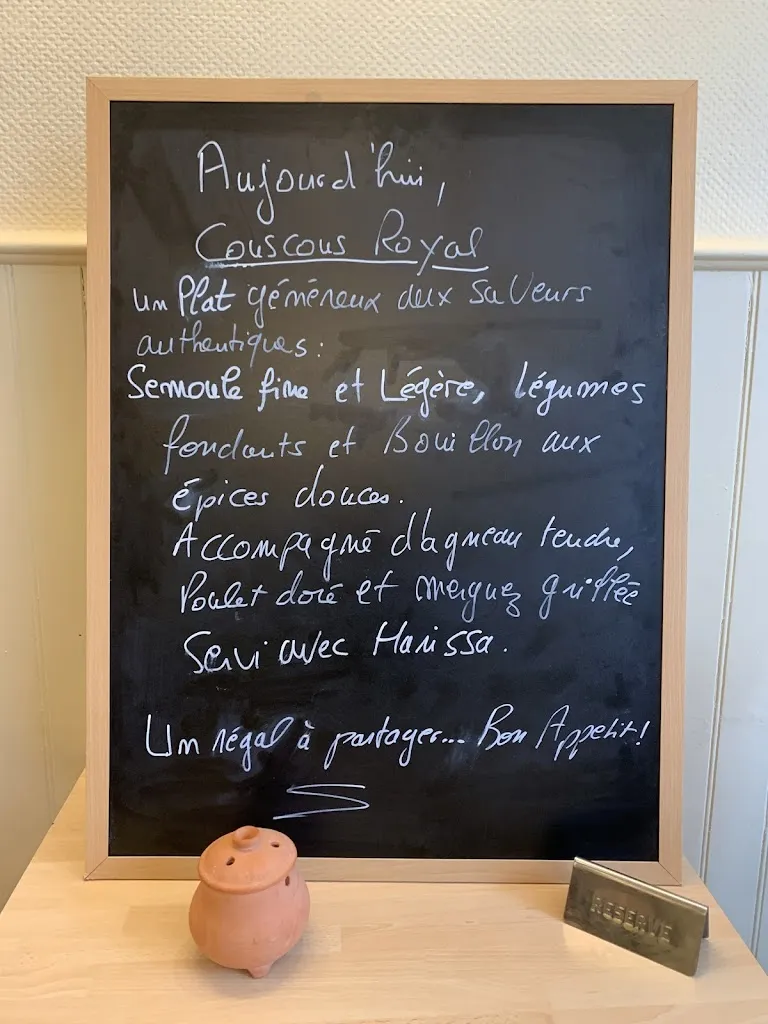 Aujourd'hui,
Couscous Royal
un Plat généreux deux saveurs
authentiques :
Semoule fine et Légère, légumes
fondants et Bouillon aux
épices douces.
Accompagné d'agneau tendre,
Poulet doré et merguez grillée
Servi avec Harissa.
Un régal à partager... Bon Appetit!
RESERVE